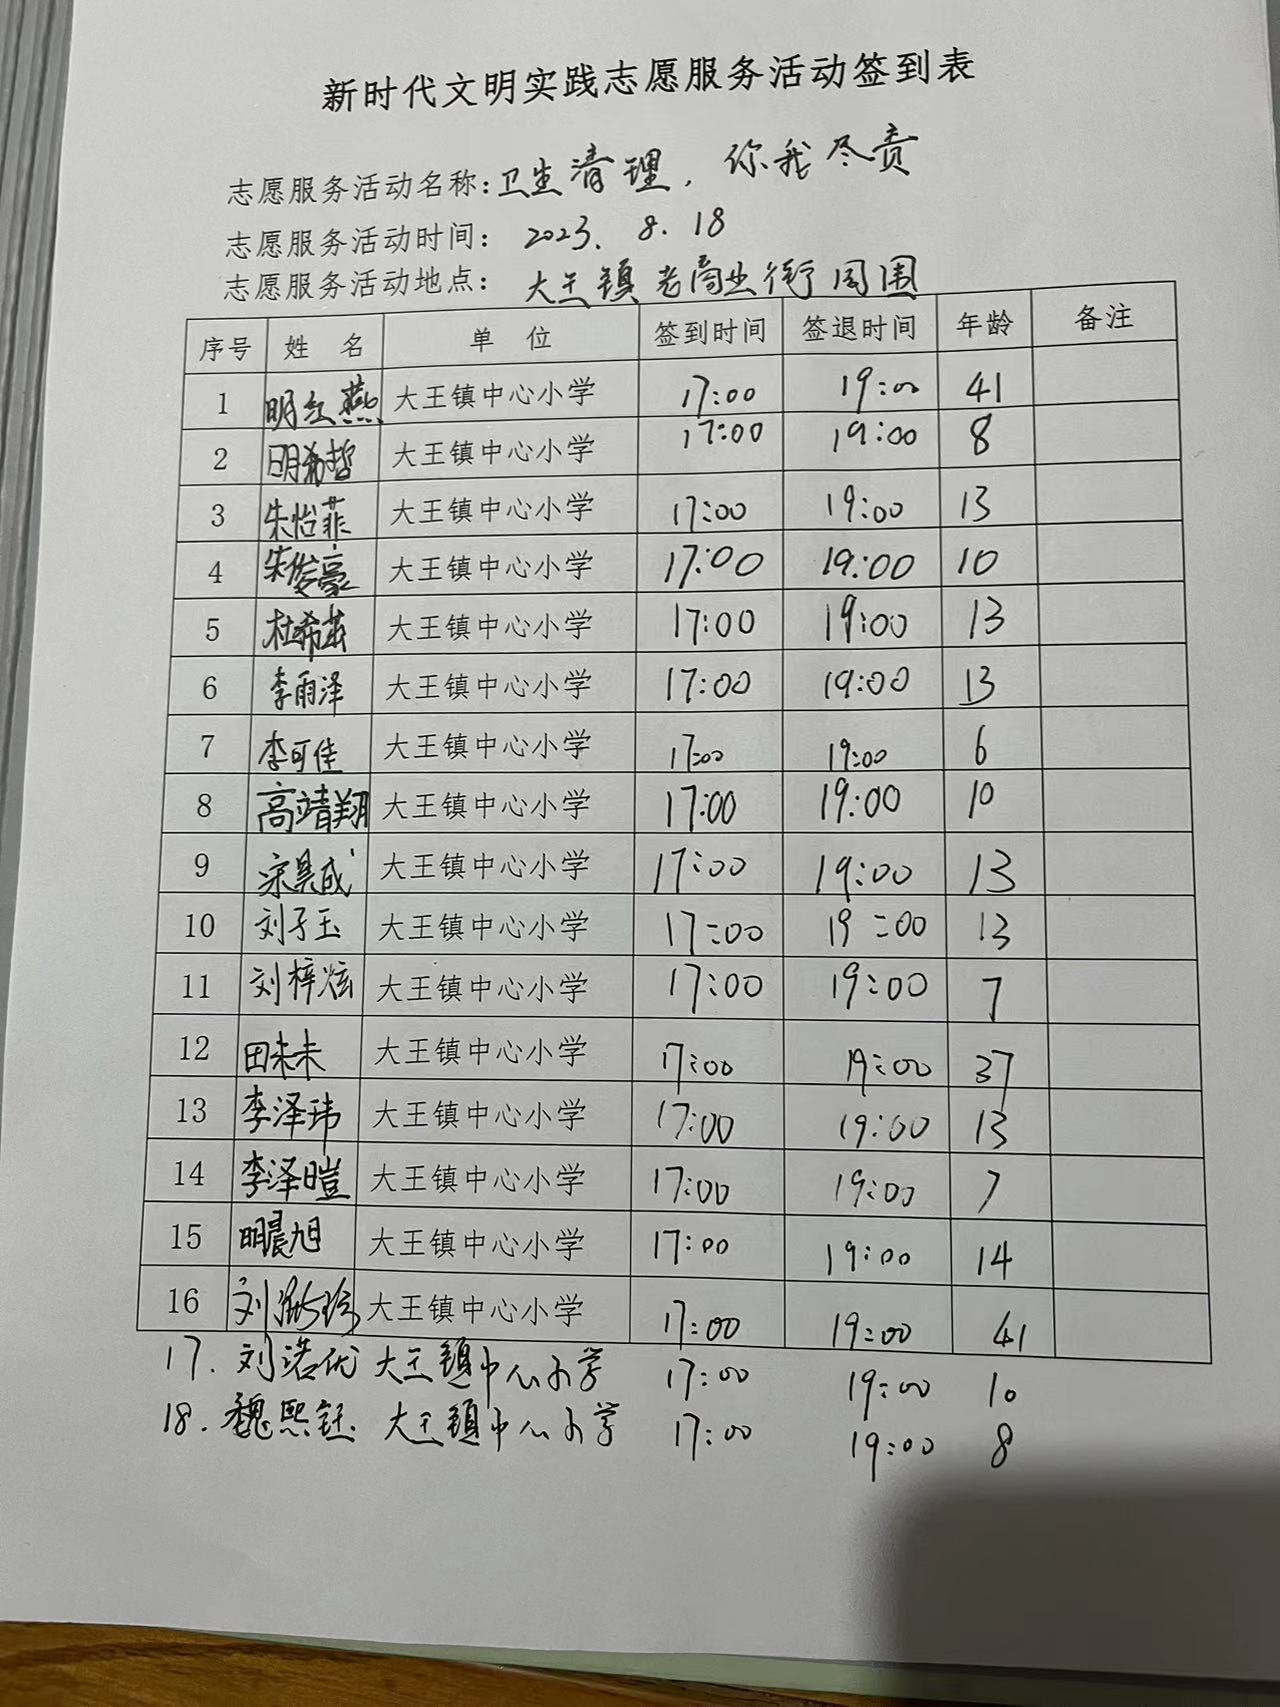 新时代文明实践志愿服务活动签到表
志愿服务活动名称:卫生清理,你我尽责
志愿服务活动时间: 2023. 8. 18
志愿服务活动地点: 大王镇老商业街周围
序号 姓 名 单 位 签到时间 签退时间 年龄 备注
1 明红燕 大王镇中心小学 17:00 19:00 41
2 明希哲 大王镇中心小学 17:00 19:00 8
3 朱怡菲 大王镇中心小学 17:00 19:00 13
4 朱俊豪 大王镇中心小学 17:00 19:00 10
5 杜希 大王镇中心小学 17:00 19:00 13
6 李雨泽 大王镇中心小学 17:00 19:00 13
7 李可佳 大王镇中心小学 17:00 19:00 6
8 高靖翔 大王镇中心小学 17:00 19:00 10
9 宋昊成 大王镇中心小学 17:00 19:00 13
10 刘子玉 大王镇中心小学 17:00 19:00 13
11 刘梓炫 大王镇中心小学 17:00 19:00 7
12 田未未 大王镇中心小学 17:00 19:00 37
13 李泽玮 大王镇中心小学 17:00 19:00 13
14 李泽暟 大王镇中心小学 17:00 19:00 7
15 明晨旭 大王镇中心小学 17:00 19:00 14
16 刘 大王镇中心小学 17:00 19:00 41
17. 刘诺优 大王镇中心小学 17:00 19:00 10
18. 魏熙钰 大王镇中心小学 17:00 19:00 8